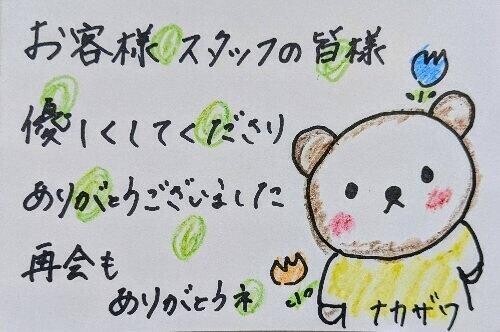 お客様スタッフの皆様
優しくしてくださり
ありがとうございました
再会も
ありがとうネ
ナカザワ